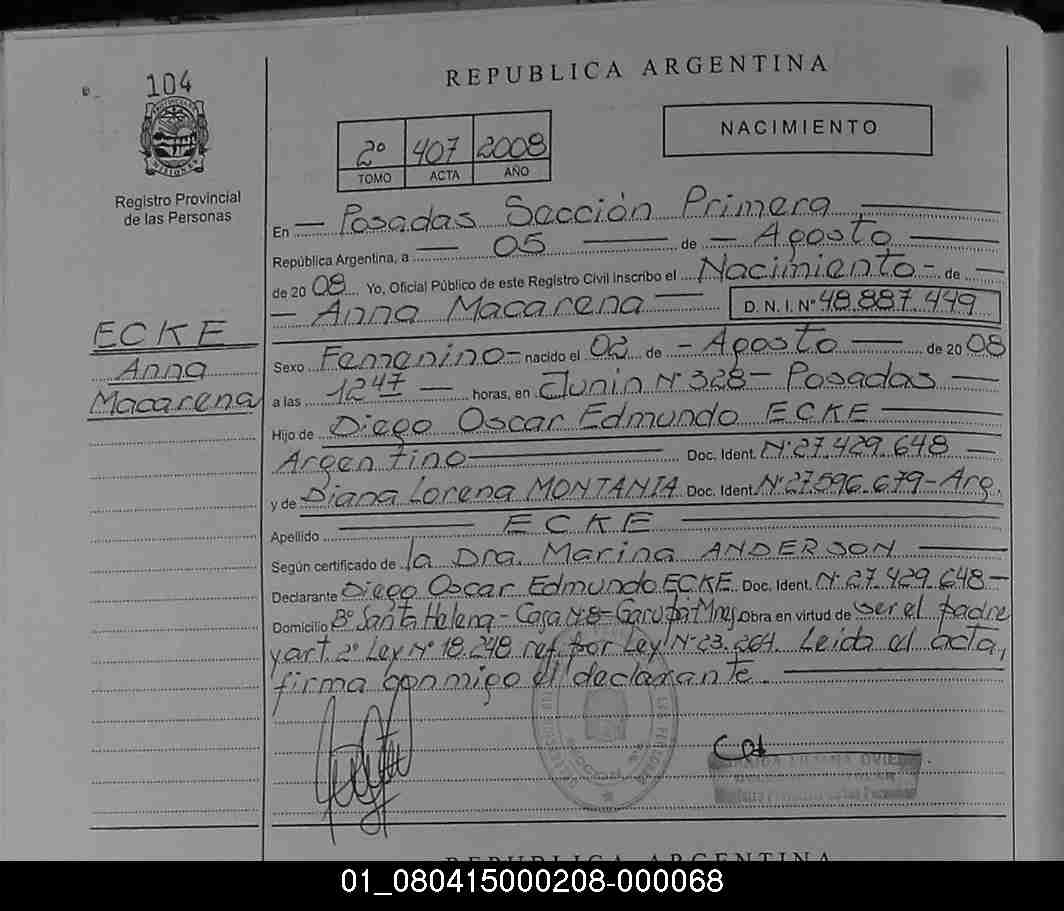 104
REPUBLICA ARGENTINA
NACIMIENTO
2º 407 2008
TOMO ACTA AÑO
Registro Provincial
de las Personas
En — Posadas Sección Primera
República Argentina, a — 05 — de — Agosto —
de 20 08 Yo, Oficial Público de este Registro Civil inscribo el Nacimiento - de —
— Anna Macarena — D. N. I. Nº 48.887.449
ECKE
Anna
Macarena
Sexo Femenino — nacido el 02 de — Agosto — de 20 08
a las 12 47 — horas, en Junin Nº 328 — Posadas —
Hijo de Diego Oscar Edmundo ECKE —
Argentino — Doc. Ident. Nº 27.429.648 —
y de Diana Lorena MONTANIA Doc. Ident. Nº 27.596.679 - Arg.
Apellido — ECKE —
Según certificado de la Dra. Marina ANDERSON —
Declarante Diego Oscar Edmundo ECKE Doc. Ident. Nº 27.429.648 —
Domicilio Bº Santa Helena - Casa Nº 8 - Garupá Mnes Obra en virtud de ser el padre
y art. 2º Ley Nº 18.248 ref por Ley Nº 23.264. Leida el acta,
firma conmigo el declarante. —
REPUBLICA ARGENTINA
01_080415000208-000068